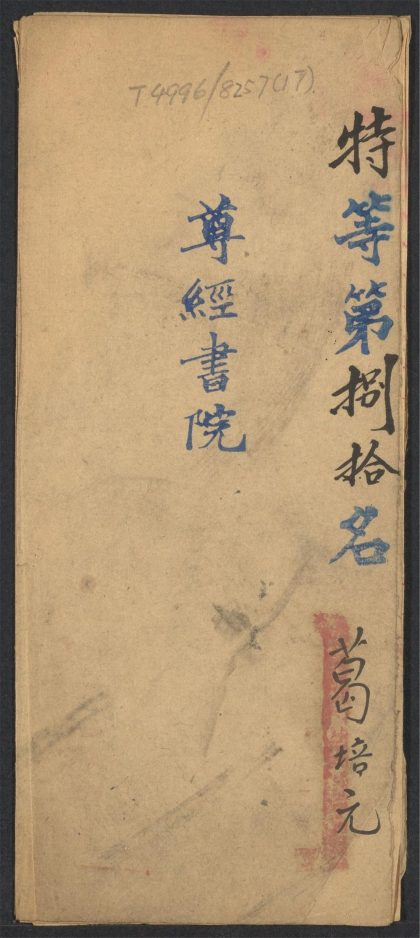 T4996/8257(17).
特等第捌拾名
葛培元
尊經書院